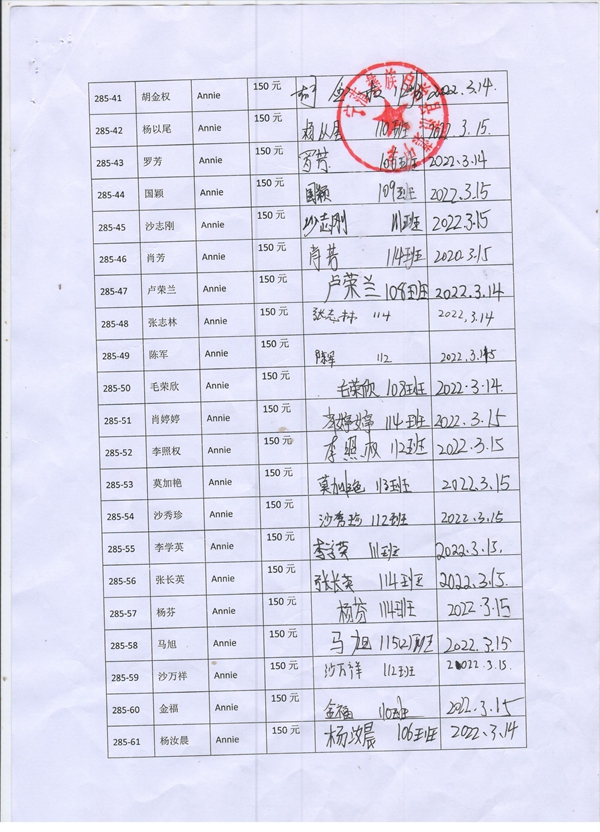 285-41 胡金权 Annie 150 元 胡金权 2022.3.14
285-42 杨以尾 Annie 150 元 杨以尾 110班 2022.3.15
285-43 罗芳 Annie 150 元 罗芳 108班 2022.3.14
285-44 国颖 Annie 150 元 国颖 109班 2022.3.15
285-45 沙志刚 Annie 150 元 沙志刚 111班 2022.3.15
285-46 肖芳 Annie 150 元 肖芳 114班 2020.3.15
285-47 卢荣兰 Annie 150 元 卢荣兰 108班 2022.3.14
285-48 张志林 Annie 150 元 张志林 114 2022.3.14
285-49 陈军 Annie 150 元 陈军 112 2022.3.15
285-50 毛荣欣 Annie 150 元 毛荣欣 108班 2022.3.14
285-51 肖婷婷 Annie 150 元 肖婷婷 114班 2022.3.15
285-52 李照权 Annie 150 元 李照权 112班 2022.3.15
285-53 莫加艳 Annie 150 元 莫加艳 113班 2022.3.15
285-54 沙秀珍 Annie 150 元 沙秀珍 112班 2022.3.15
285-55 李学英 Annie 150 元 李学英 111班 2022.3.15.
285-56 张长英 Annie 150 元 张长英 114班 2022.3.15.
285-57 杨芬 Annie 150 元 杨芬 114班 2022.3.15
285-58 马旭 Annie 150 元 马旭 115班 2022.3.15
285-59 沙万祥 Annie 150 元 沙万祥 112班 2022.3.15.
285-60 金福 Annie 150 元 金福 110班 2022.3.15
285-61 杨汝晨 Annie 150 元 杨汝晨 106班 2022.3.14